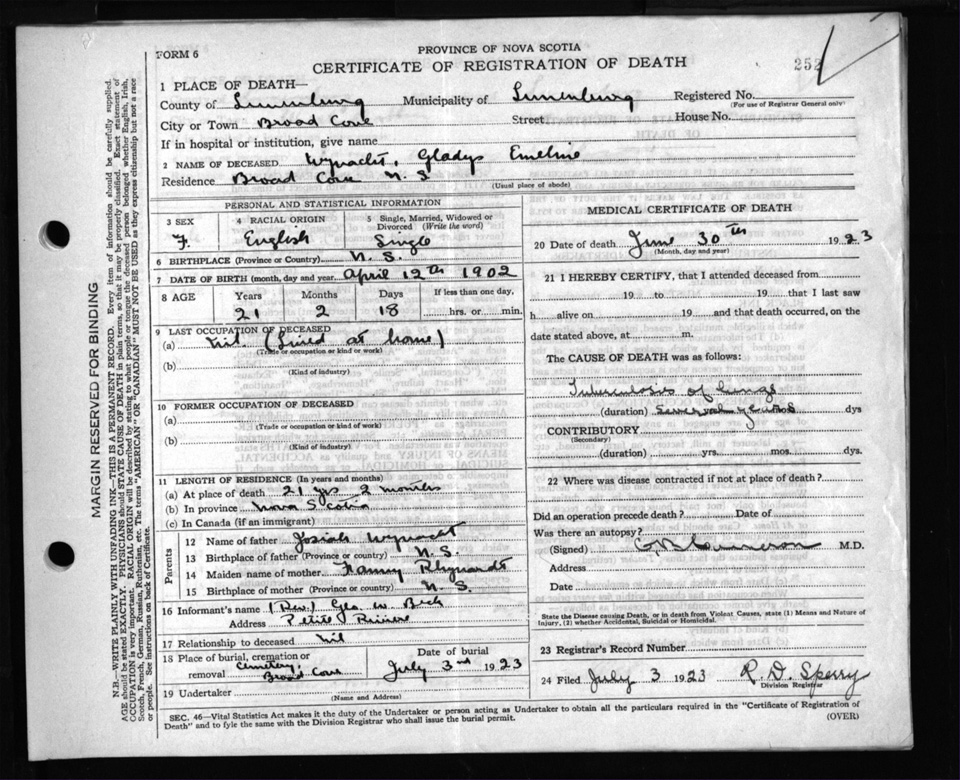 FORM 6
PROVINCE OF NOVA SCOTIA
CERTIFICATE OF REGISTRATION OF DEATH
252
1 PLACE OF DEATH—
County of Lunenburg Municipality of Lunenburg Registered No.
(For use of Registrar General only)
City or Town Broad Cove Street House No.
If in hospital or institution, give name
2 NAME OF DECEASED Wynacht, Gladys Emeline
Residence Broad Cove N. S
(Usual place of abode)
PERSONAL AND STATISTICAL INFORMATION
3 SEX 4 RACIAL ORIGIN 5 Single, Married, Widowed or Divorced (Write the word)
F. English Single
6 BIRTHPLACE (Province or Country) N. S.
7 DATE OF BIRTH (month, day and year) April 12th 1902
8 AGE Years Months Days If less than one day,
21 2 18 hrs. or min.
9 LAST OCCUPATION OF DECEASED
(a) Nil (Lived at home)
(Trade or occupation or kind or work)
(b)
(Kind of industry)
10 FORMER OCCUPATION OF DECEASED
(a)
(Trade or occupation or kind of work)
(b)
(Kind of industry)
11 LENGTH OF RESIDENCE (In years and months)
(a) At place of death 21 yrs 2 months
(b) In province Nova Scotia
(c) In Canada (if an immigrant)
Parents
12 Name of father Josiah Wynacht
13 Birthplace of father (Province or country) N. S.
14 Maiden name of mother Fanny Rhynardt
15 Birthplace of mother (Province or country) N. S.
16 Informant's name (Rev.) Geo. W. Beck
Address Petite Riviere
17 Relationship to deceased Nil
18 Place of burial, cremation or removal Cemetery, Broad Cove Date of burial July 3rd 1923
19 Undertaker
(Name and Address)
MEDICAL CERTIFICATE OF DEATH
20 Date of death June 30th 1923
(Month, day and year)
21 I HEREBY CERTIFY, that I attended deceased from
19 to 19 that I last saw
h alive on 19 and that death occurred, on the
date stated above, at m.
The CAUSE OF DEATH was as follows:
Tuberculosis of lungs
(duration) Several years dys
CONTRIBUTORY
(Secondary)
(duration) yrs. mos. dys.
22 Where was disease contracted if not at place of death?
Did an operation precede death? Date of
Was there an autopsy?
(Signed) Cameron M.D.
Address
Date
State the Disease causing Death, or in death from Violent Causes, state (1) Means and Nature of
Injury, (2) whether Accidental, Suicidal or Homicidal.
23 Registrar's Record Number
24 Filed July 3 1923 R. D. Sperry
Division Registrar
SEC. 46—Vital Statistics Act makes it the duty of the Undertaker or person acting as Undertaker to obtain all the particulars required in the "Certificate of Registration of
Death" and to fyle the same with the Division Registrar who shall issue the burial permit.
(OVER)
MARGIN RESERVED FOR BINDING
N.B.—WRITE PLAINLY WITH UNFADING INK—THIS IS A PERMANENT RECORD. Every item of information should be carefully supplied.
AGE should be stated EXACTLY. PHYSICIANS should STATE CAUSE OF DEATH in plain terms, so that it may be properly classified. Exact statement of
OCCUPATION is very important. RACIAL ORIGIN will be described by stating to what people or tongue the deceased person belonged whether English, Irish,
Scotch, French, German, Russian, Ruthenian, etc. The terms "AMERICAN" OR "CANADIAN" MUST NOT BE USED as they express citizenship but not a race
or people. See instructions on back of Certificate.